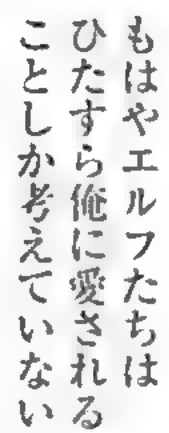 もはやエルフたちは
ひたすら俺に愛される
ことしか考えていない